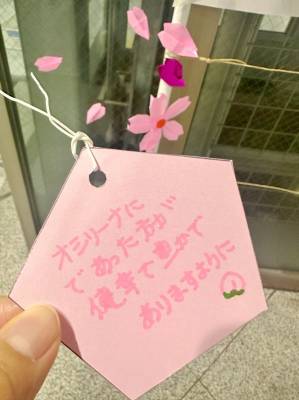 オシリーナに
であった方が
健幸で豊かで
ありますように